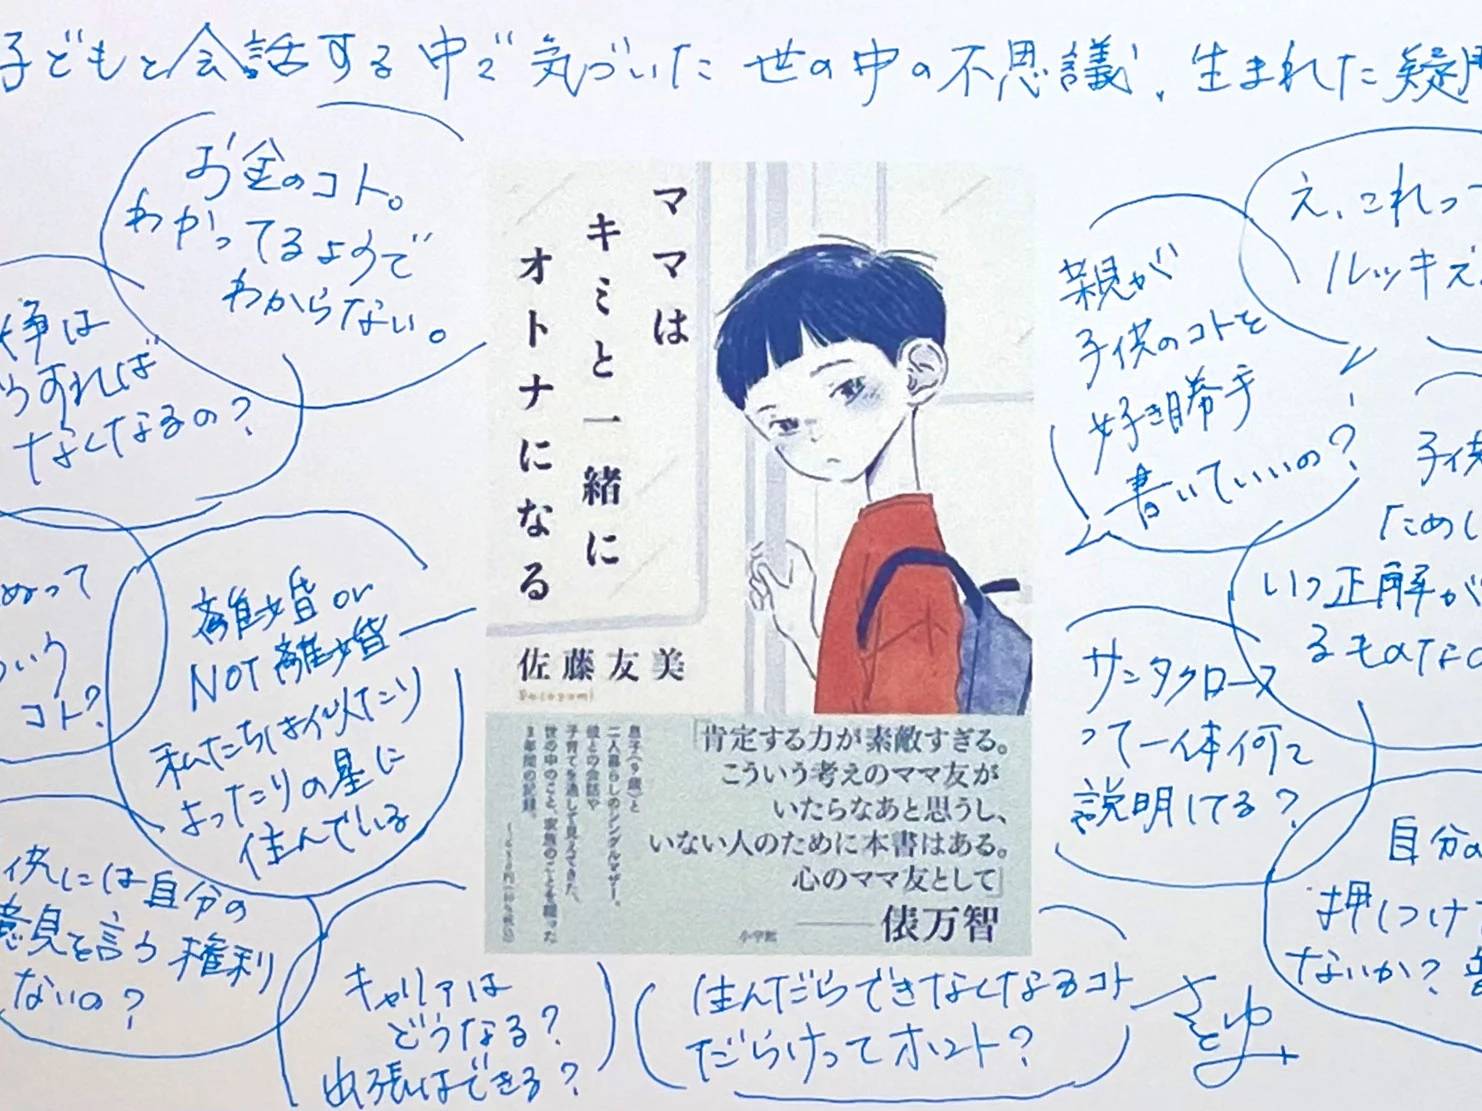 子どもと会話する中で気づいた世の中の不思議、生まれた疑問
お金のコト。
わかってるようで
わからない。
争は
うすれば
なくなるの?
離婚 or
NOT離婚
私たちは似たり
よったりの星に
住んでいる
供には自分の
意見を言う権利
ないの?
キャリアは
どうなる?
出張はできる?
ママは
キミと一緒に
オトナになる
佐藤友美
「肯定する力が素敵すぎる。
こういう考えのママ友が
いたらなあと思うし、
いない人のために本書はある。
心のママ友として」
――俵万智
息子(9歳)と
二人暮らしのシングルマザー。
彼との会話や
子育てを通して見えてきた、
世の中のこと、家族のことを綴った
3年間の記録。
小学館
え、これって
ルッキズ
親が
子供のコトを
好き勝手
書いていいの?
いつ正解が
るものなの
サンタクロース
って一体何て
説明してる?
自分の
押しつけ
ないか?
住んだらできなくなるコト
だらけってホント?
さとゆみ